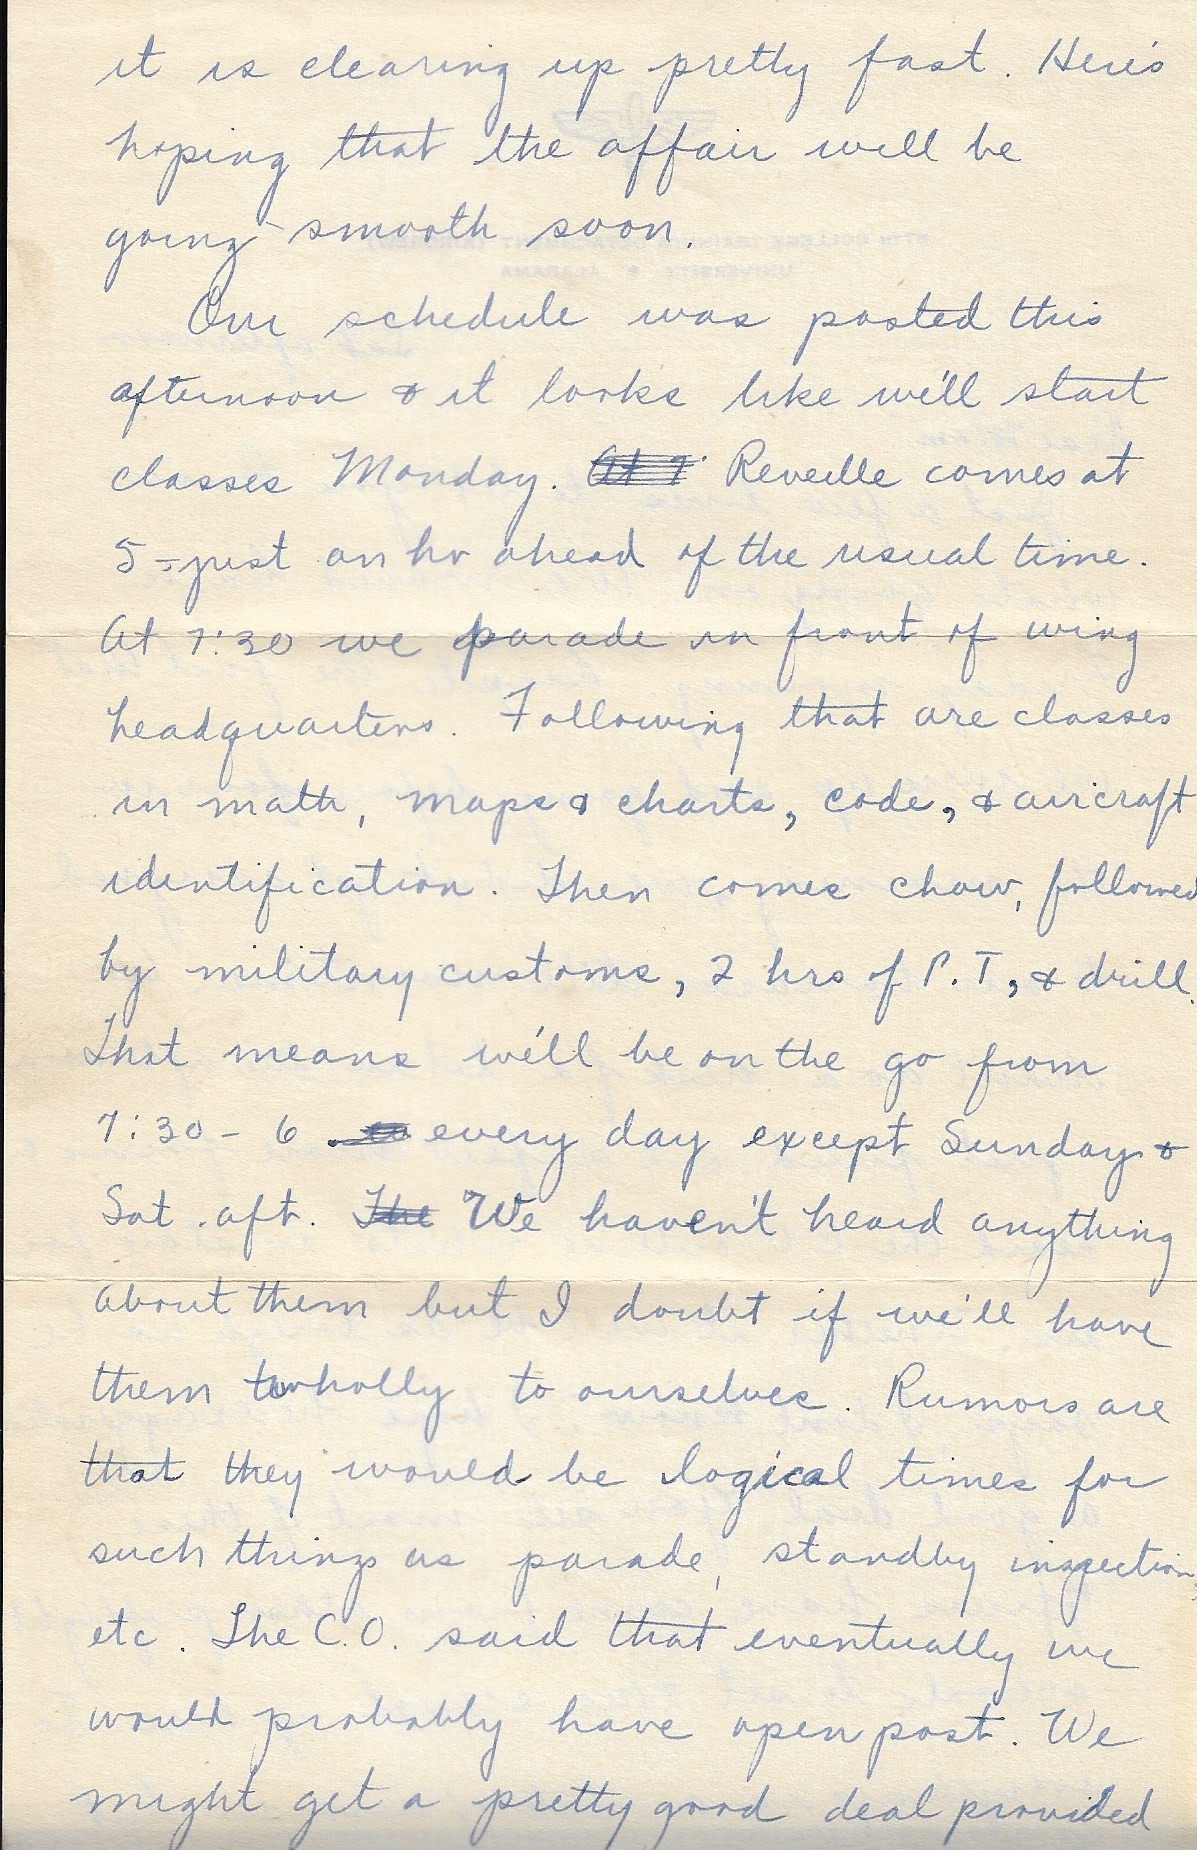 it is clearing up pretty fast. Here's
hoping that the affair will be
going smooth soon.
Our schedule was posted this
afternoon & it looks like we'll start
classes Monday. At 7 Reveille comes at
5 - just an hr ahead of the usual time.
At 7:30 we parade in front of wing
headquarters. Following that are classes
in math, maps & charts, code, & aircraft
identification. Then comes chow, followed
by military customs, 2 hrs of P.T, & drill.
That means we'll be on the go from
7:30 - 6 every day except Sunday &
Sat. aft. The We haven't heard anything
about them but I doubt if we'll have
them wholly to ourselves. Rumors are
that they would be logical times for
such things as parade, standby inspection,
etc. The C.O. said that eventually we
would probably have open post. We
might get a pretty good deal provided